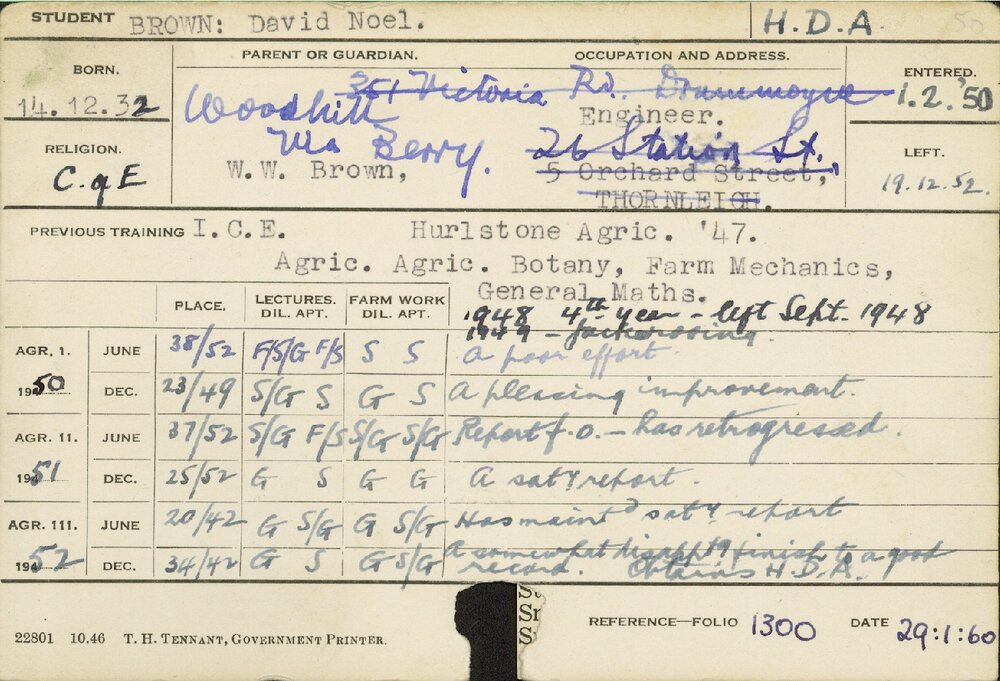 STUDENT BROWN: David Noel. H.D.A 50
BORN. PARENT OR GUARDIAN. OCCUPATION AND ADDRESS. ENTERED.
14.12.32 Woodhill 351 Victoria Rd. Drummoyne 1.2.'50
Engineer.
RELIGION. Via Berry. 26 Station St. LEFT.
C. of E W.W. Brown, 5 Orchard Street, 19.12.52.
THORNLEIGH.
PREVIOUS TRAINING I.C.E. Hurlstone Agric. '47.
Agric. Agric. Botany, Farm Mechanics,
General Maths.
PLACE. LECTURES. DIL. APT. FARM WORK DIL. APT. 1948 4th year - left Sept. 1948
1949 - Jackerooing.
AGR. 1. JUNE 38/52 F/S/G F/S S S A poor effort.
1950 DEC. 23/49 S/G S G S A pleasing improvement.
AGR. 11. JUNE 37/52 S/G F/S S/G S/G Report f.o. - has retrogressed.
1951 DEC. 25/52 G S G G A satY report.
AGR. 111. JUNE 20/42 G S/G G S/G Has maintD satY report
1952 DEC. 34/42 G S G S/G A somewhat disapptg finish to a good
record. Obtains H.D.A.
S
Sr
S
22801 10.46 T. H. TENNANT, GOVERNMENT PRINTER. REFERENCE—FOLIO 1300 DATE 29:1:60